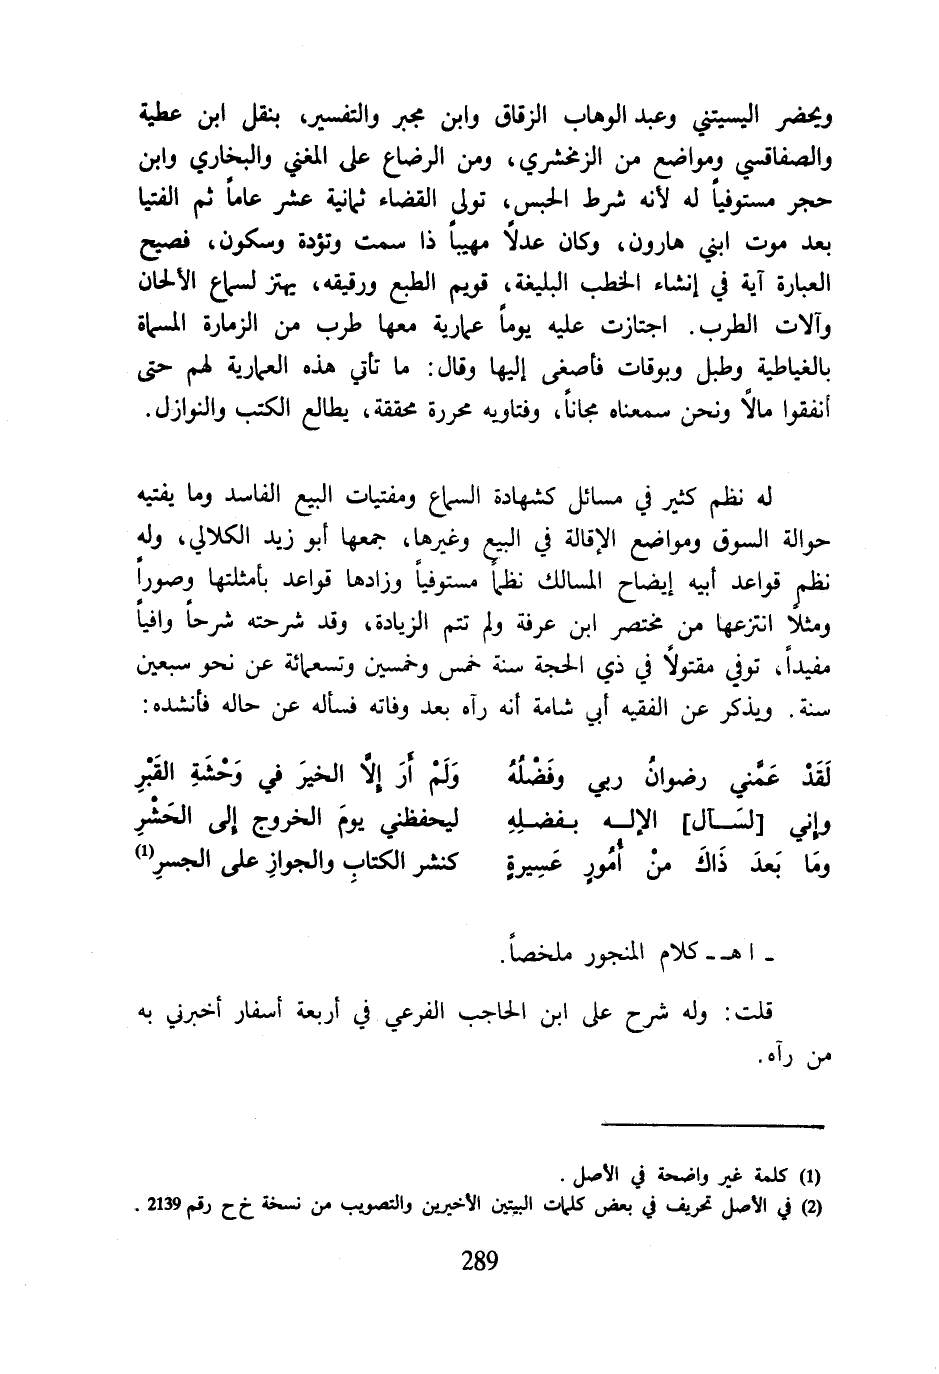 ويحضر اليسيتني وعبد الوهاب الزقاق وابن مجبر والتفسير، بنقل ابن عطية
والصفاقسي ومواضع من الزمخشري، ومن الرضاع على المغني والبخاري وابن
حجر مستوفياً له لأنه شرط الحبس، تولى القضاء ثمانية عشر عاماً ثم الفتيا
بعد موت ابني هارون، وكان عدلاً مهيباً ذا سمت وتؤدة وسكون، فصيح
العبارة آية في إنشاء الخطب البليغة، قويم الطبع ورقيقه، يهتز لسماع الألحان
وآلات الطرب. اجتازت عليه يوماً عمارية معها طرب من الزمارة المسماة
بالغياطية وطبل وبوقات فأصغى إليها وقال: ما تأتي هذه العمارية لهم حتى
أنفقوا مالاً ونحن سمعناه مجاناً، وفتاويه محررة محققة، يطالع الكتب والنوازل.
له نظم كثير في مسائل كشهادة السماع ومفتيات البيع الفاسد وما يفتيه
حوالة السوق ومواضع الإقالة في البيع وغيرها، جمعها أبو زيد الكلالي، وله
نظم قواعد أبيه إيضاح المسالك نظماً مستوفياً وزادها قواعد بأمثلتها وصوراً
ومثلاً انتزعها من مختصر ابن عرفة ولم تتم الزيادة، وقد شرحته شرحاً وافياً
مفيداً، توفي مقتولاً في ذي الحجة سنة خمس وخمسين وتسعمائة عن نحو سبعين
سنة. ويذكر عن الفقيه أبي شامة أنه رآه بعد وفاته فسأله عن حاله فأنشده:
لَقَدْ عَمَّني رضوانُ ربي وفَضْلُهُ وَلَمْ أَرَ إِلاَّ الخيرَ في وَحْشَةِ القَبْرِ
وإني [لسَـآل] الإلـه بـفضـلِهِ ليحفظني يومَ الخروج إلى الحَشْرِ
وَمَا بَعدَ ذَاكَ منْ أُمُورٍ عَسِيرةٍ كنشر الكتابِ والجوازِ على الجسرِ(1)
ـ ا هـ ـ كلام المنجور ملخصاً.
قلت: وله شرح على ابن الحاجب الفرعي في أربعة أسفار أخبرني به
من رآه.
(1) كلمة غير واضحة في الأصل .
(2) في الأصل تحريف في بعض كلمات البيتين الأخيرين والتصويب من نسخة خ ح رقم 2139 .
289